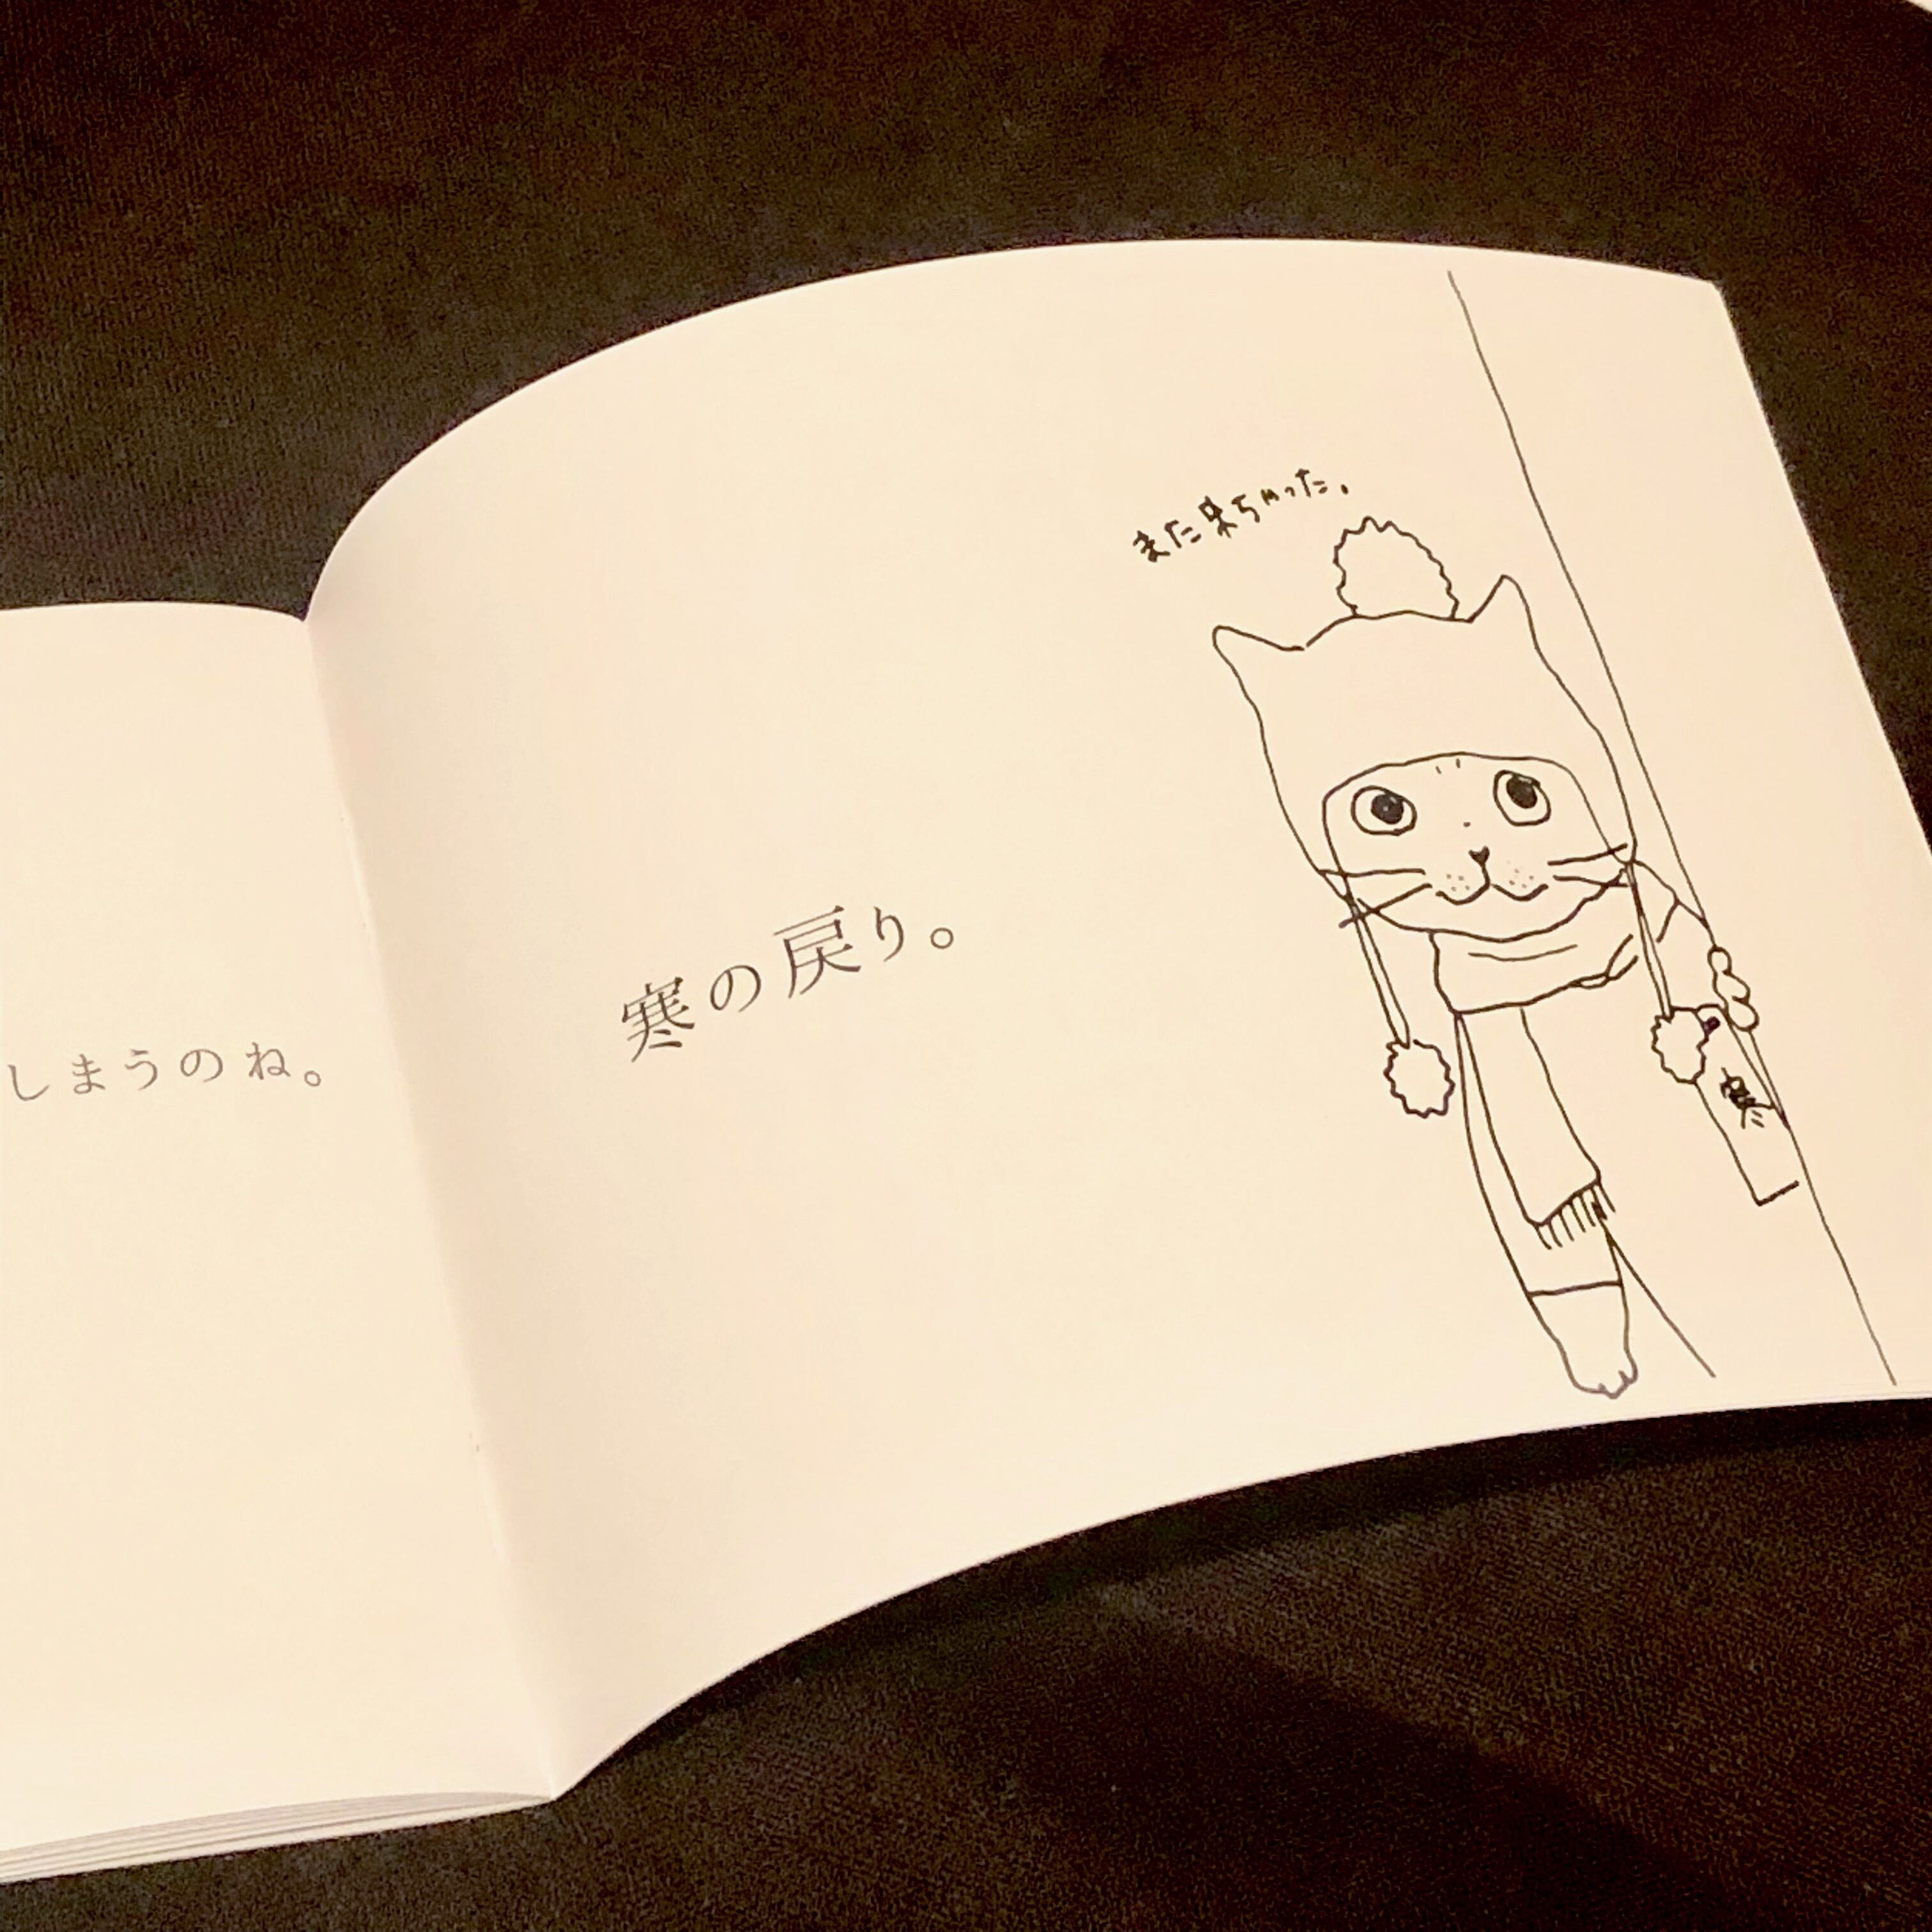 しまうのね。
寒の戻り。
また来ちゃった。